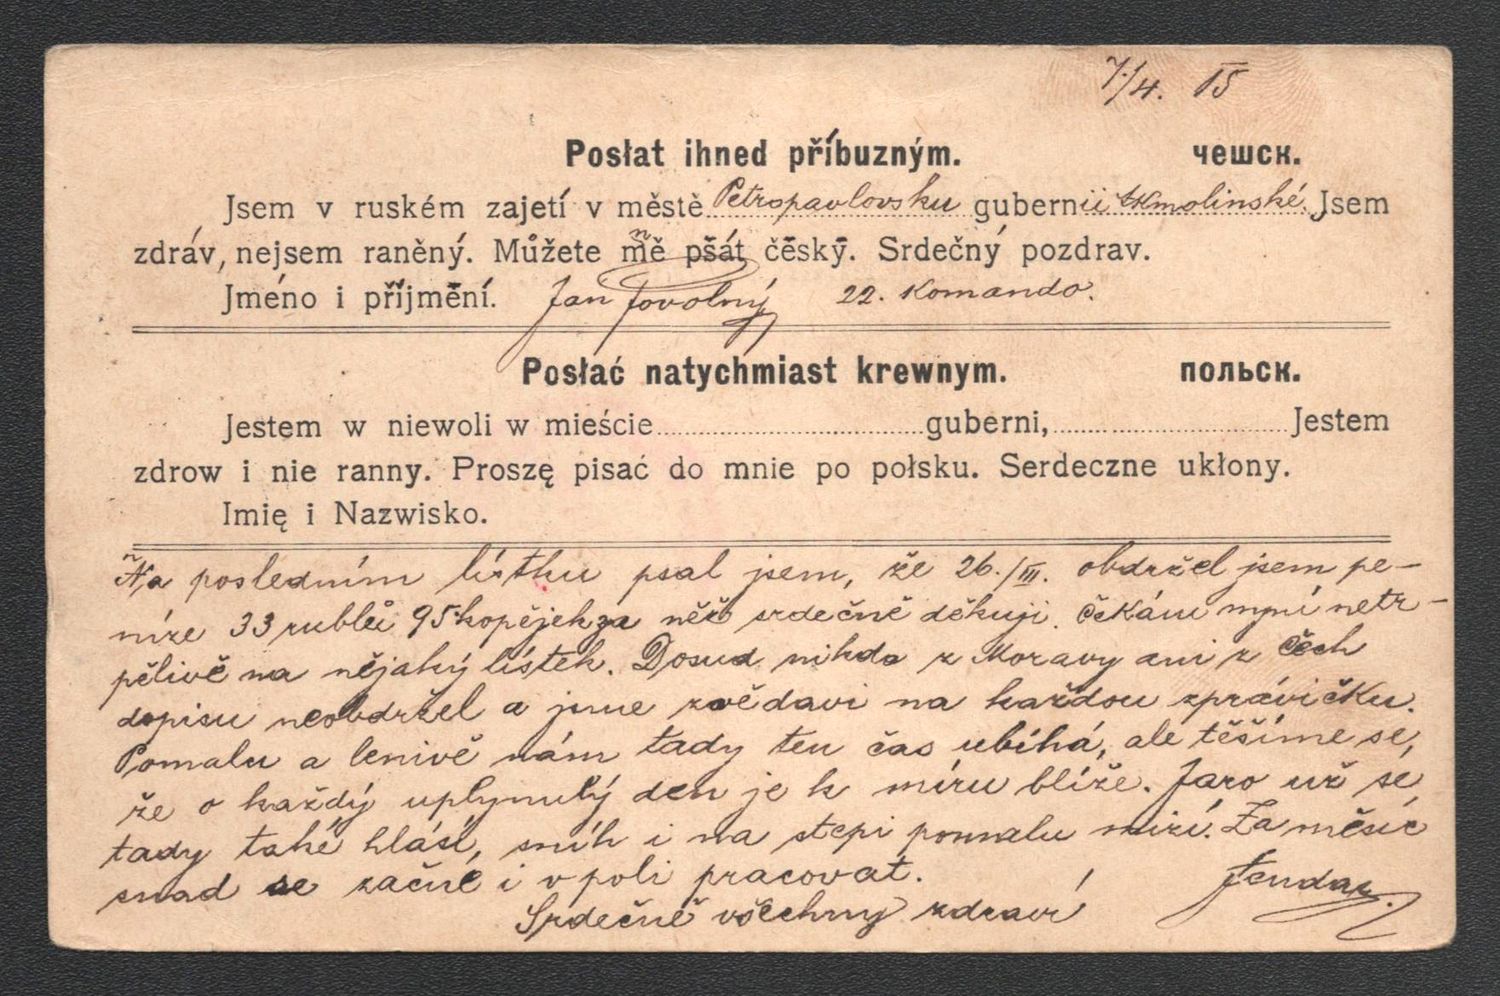 7./4. 15
Posłat ihned příbuzným. чешск.
Jsem v ruském zajetí v městě Petropavlovsku gubernii Akmolinské. Jsem
zdráv, nejsem raněný. Můžete mně pšát česky. Srdečný pozdrav.
Jméno i příjmění. Jan 22. Komando.
Posłać natychmiast krewnym. польск.
Jestem w niewoli w mieście guberni, Jestem
zdrow i nie ranny. Proszę pisać do mnie po połsku. Serdeczne ukłony.
Imię i Nazwisko.
Na posledním lístku psal jsem, že 26./III. obdržel jsem pe-
níze 33 rublů 95 kopějek za něž srdečně děkuji. Čekám nyní netr-
pělivě na nějaký lístek. Dosud nikdo z Moravy ani z Čech
dopisu neobdržel a jsme zvědavi na každou zprávičku.
Pomalu a lenivě nám tady ten čas ubíhá, ale těšíme se,
že o každý uplynulý den je k míru blíže. Jaro už se
tady také hlásí, sníh i na stepi pomalu mizí. Za měsíc
snad se začne i v poli pracovat.
Srdečně všechny zdraví